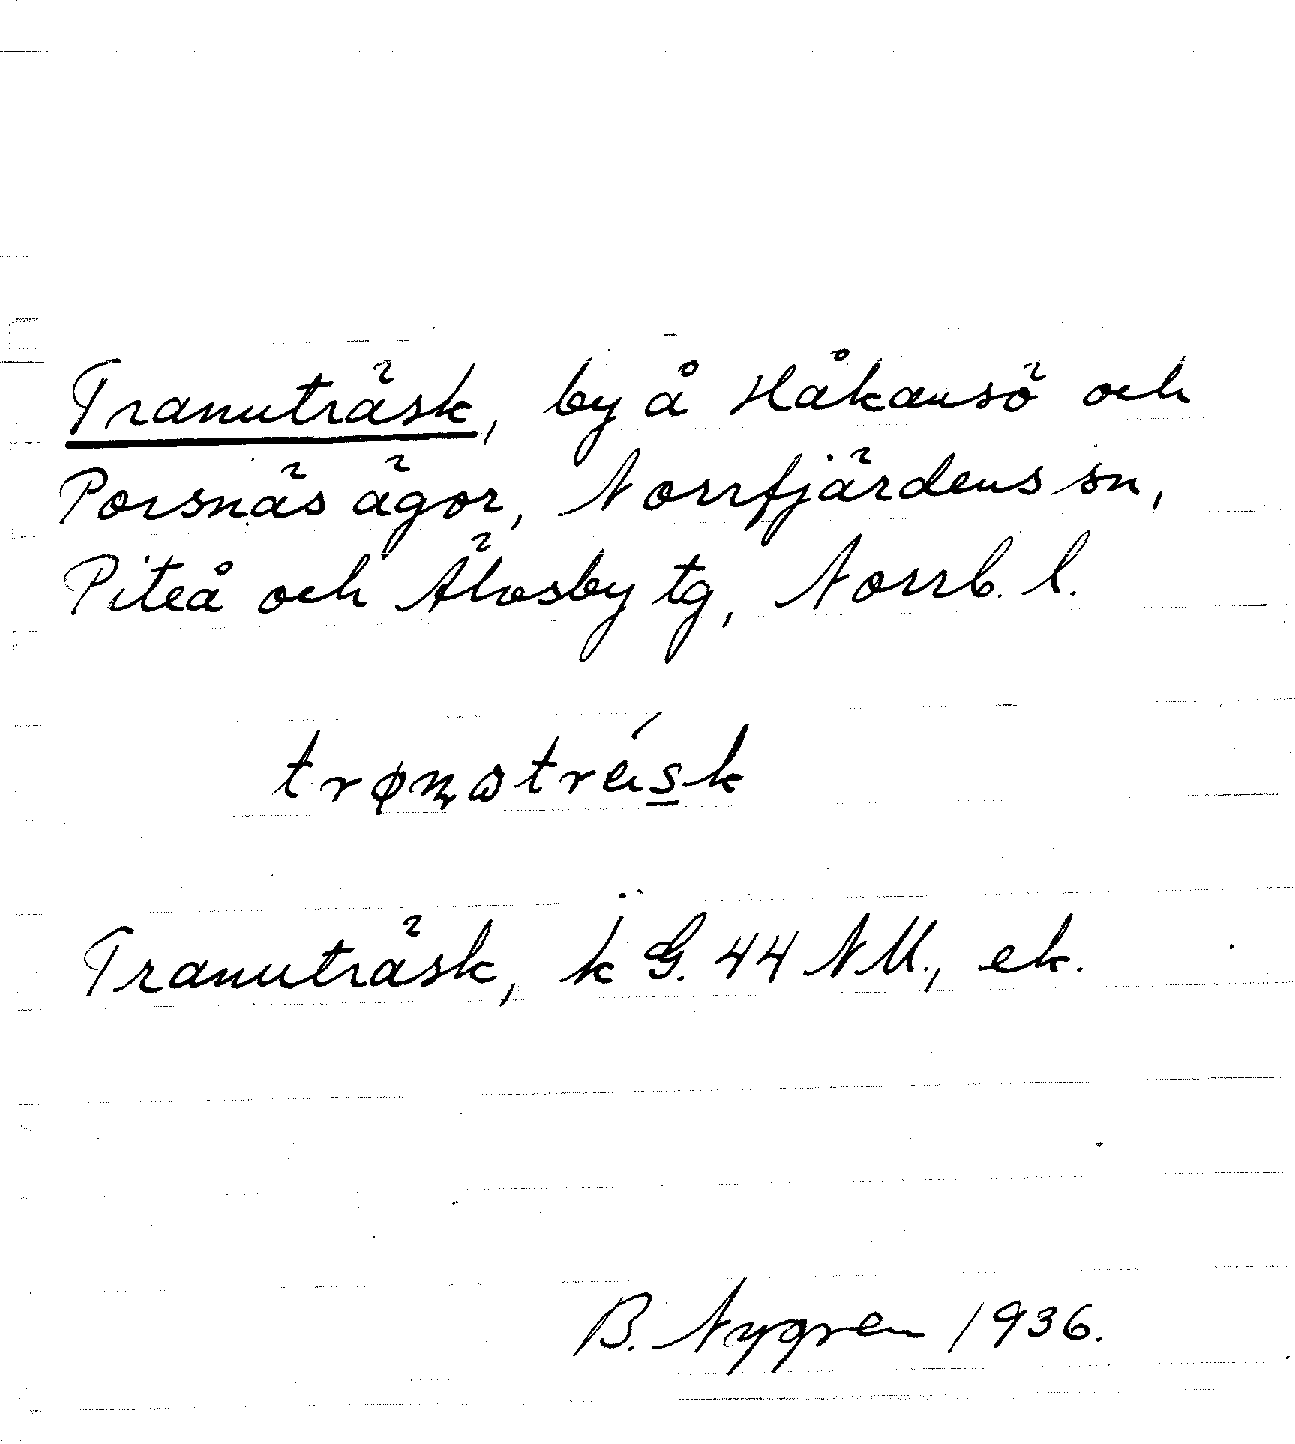 Tranuträsk, by å Håkansö och
Porsnäs ägor, Norrfjärdens sn,
Piteå och Älvsby tg, Norrb. l.
Tranuträsk, k G. 44 NU., ek.
B. Nygren 1936.